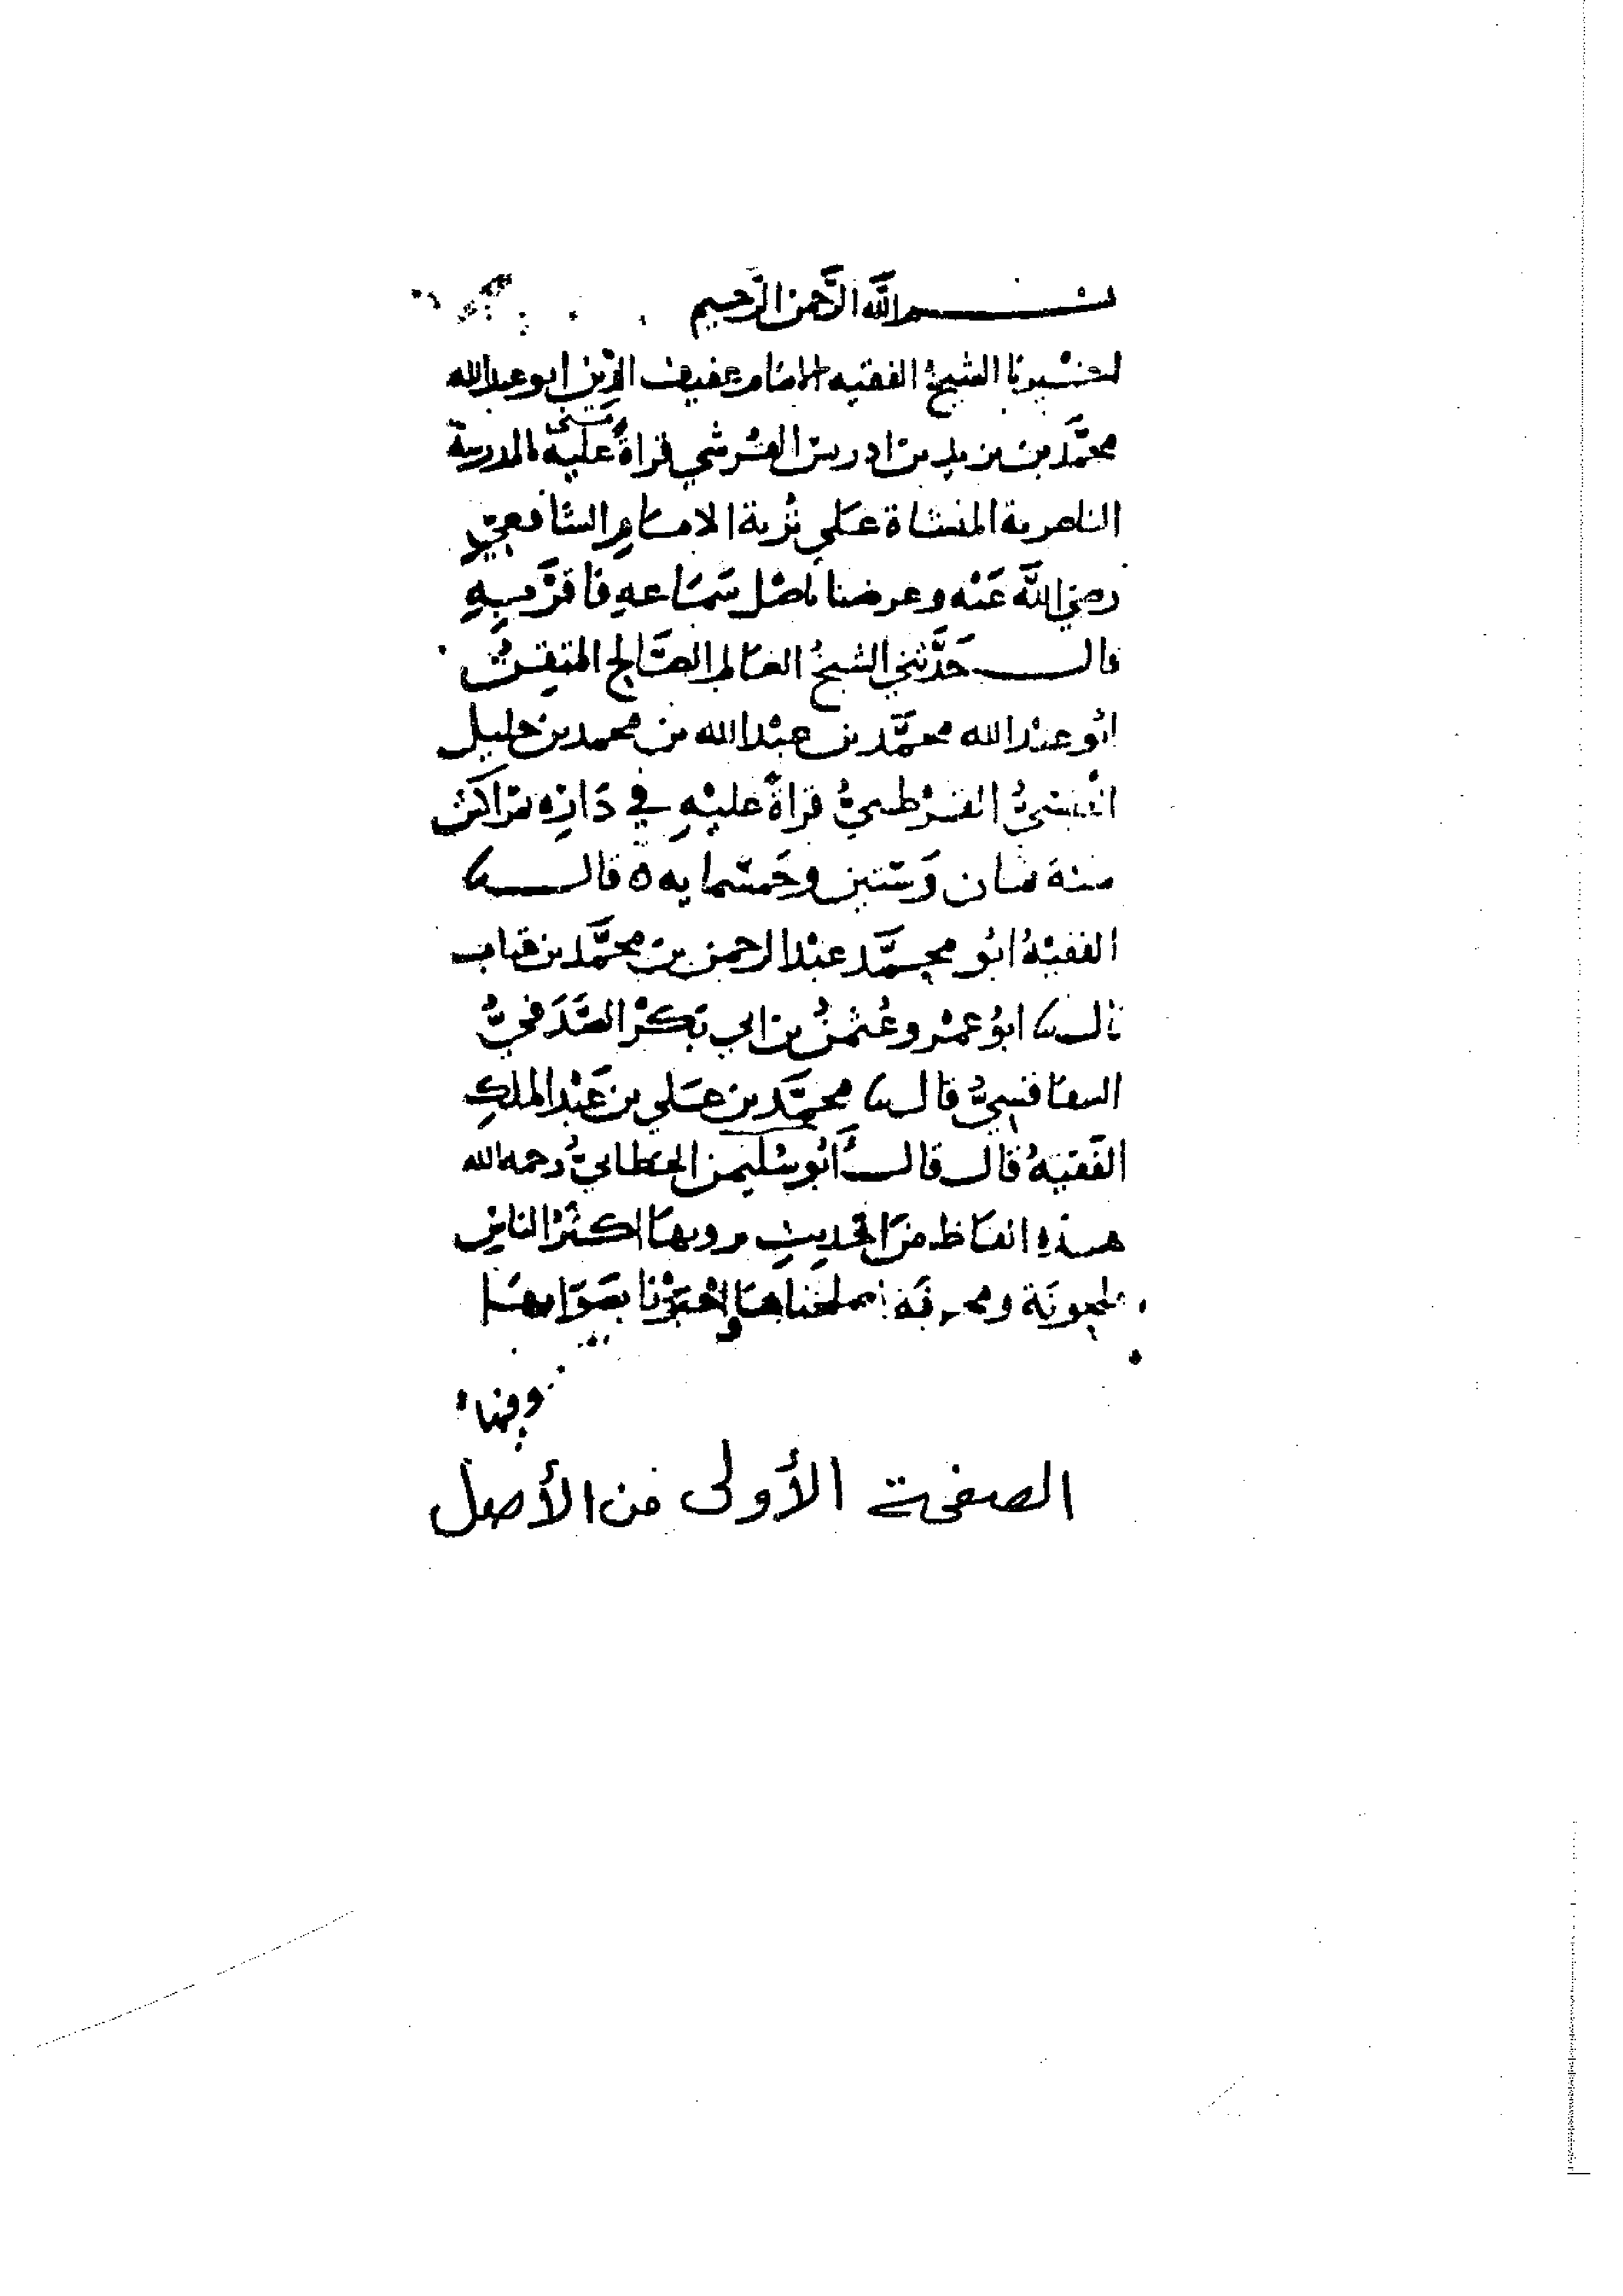 بسم الله الرَّحمن الرَّحيم
اخبرنا الشيخُ الفقيه الامام عفيف الدين ابو عبد الله
محمَّد بن يزيد بن ادريس القرشي قراةً عليه بالمدرسة
الناصرية المنشاة عَلي تُربة الامام الشافعيّ
رضي اللَّه عَنْه وعرضنا باصْل سَمَاعهِ فاقرَّ بهِ
قال حَدَّثني الشيخُ العالم الصَّالح المتقن
ابُو عبْد الله محمَّد بن عبْد الله بن محمد بن خليل
القيسيُّ القرْطبيُّ قراةً عليْهِ في دَارِه بمراكش
سنة ثمان وَستين وخَمسْماية ه قال نا
الفقيْهُ ابُو محمَّد عبْد الرحمن بن محمَّد بن عتاب
قال نا ابوُ عمْرو عُثمنُ بن ابي بَكرْ الصَّدَفيُّ
السفاقسِيُّ قال نا محمَّد بن عَلي بن عَبْد الملكِ
الفَقيهُ قال قال أَبُو سُليمن الخطابيُّ رحمه الله
هذهِ الفاظ منَ الحديثِ يرويها اكثَرْ الناسِ
ملحونَة ومحرفَة اصلحناها واخبَرْنا بصَوَابهَا
وفيها
الصفحة الأولى من الأصل